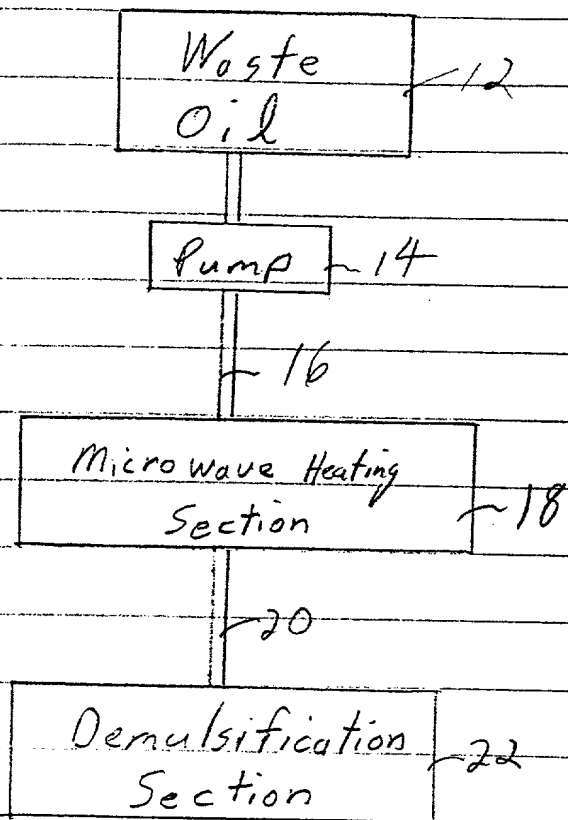 Waste
Oil
12
Pump
14
16
Microwave Heating
Section
18
20
Demulsification
Section
22